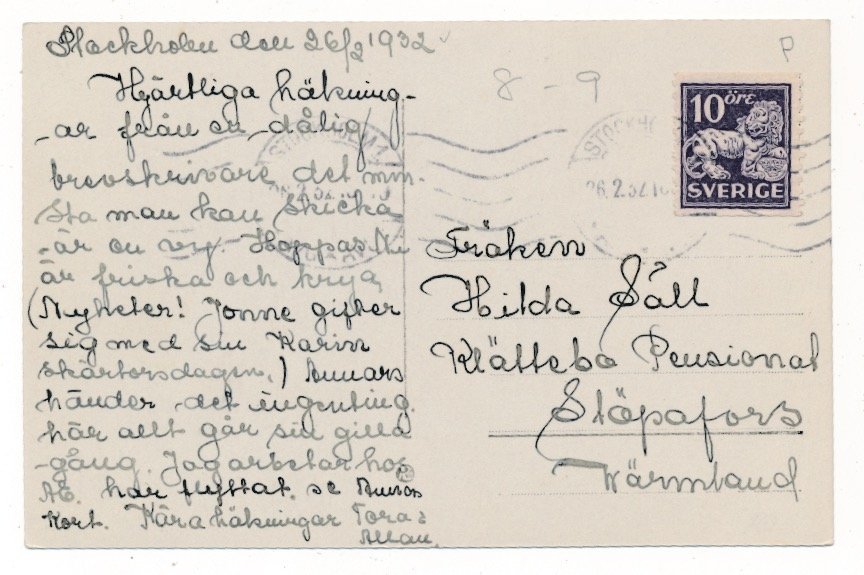 Stockholm den 26/2 1932
Hjärtliga hälsning-
-ar från en dålig
brevskrivare det min-
sta man kan skicka
är en vy. Hoppas Ni
är friska och krya
(Nyheter! Jonne gifter
sig med sin Karin
skärtorsdagen.) Annars
händer det ingenting
här allt går sin gilla
-gång. Jag arbetar hos
AE. har flyttat. se Annas
kort. Kära hälsningar Tora &
Allan.
8 - 9
P
10 ÖRE
SVERIGE
STOCKHOLM 1
26.2.32.
STOCKHO
26.2.32.
Fröken
Hilda Säll
Klätteba Pensionat
Stöpafors
Värmland